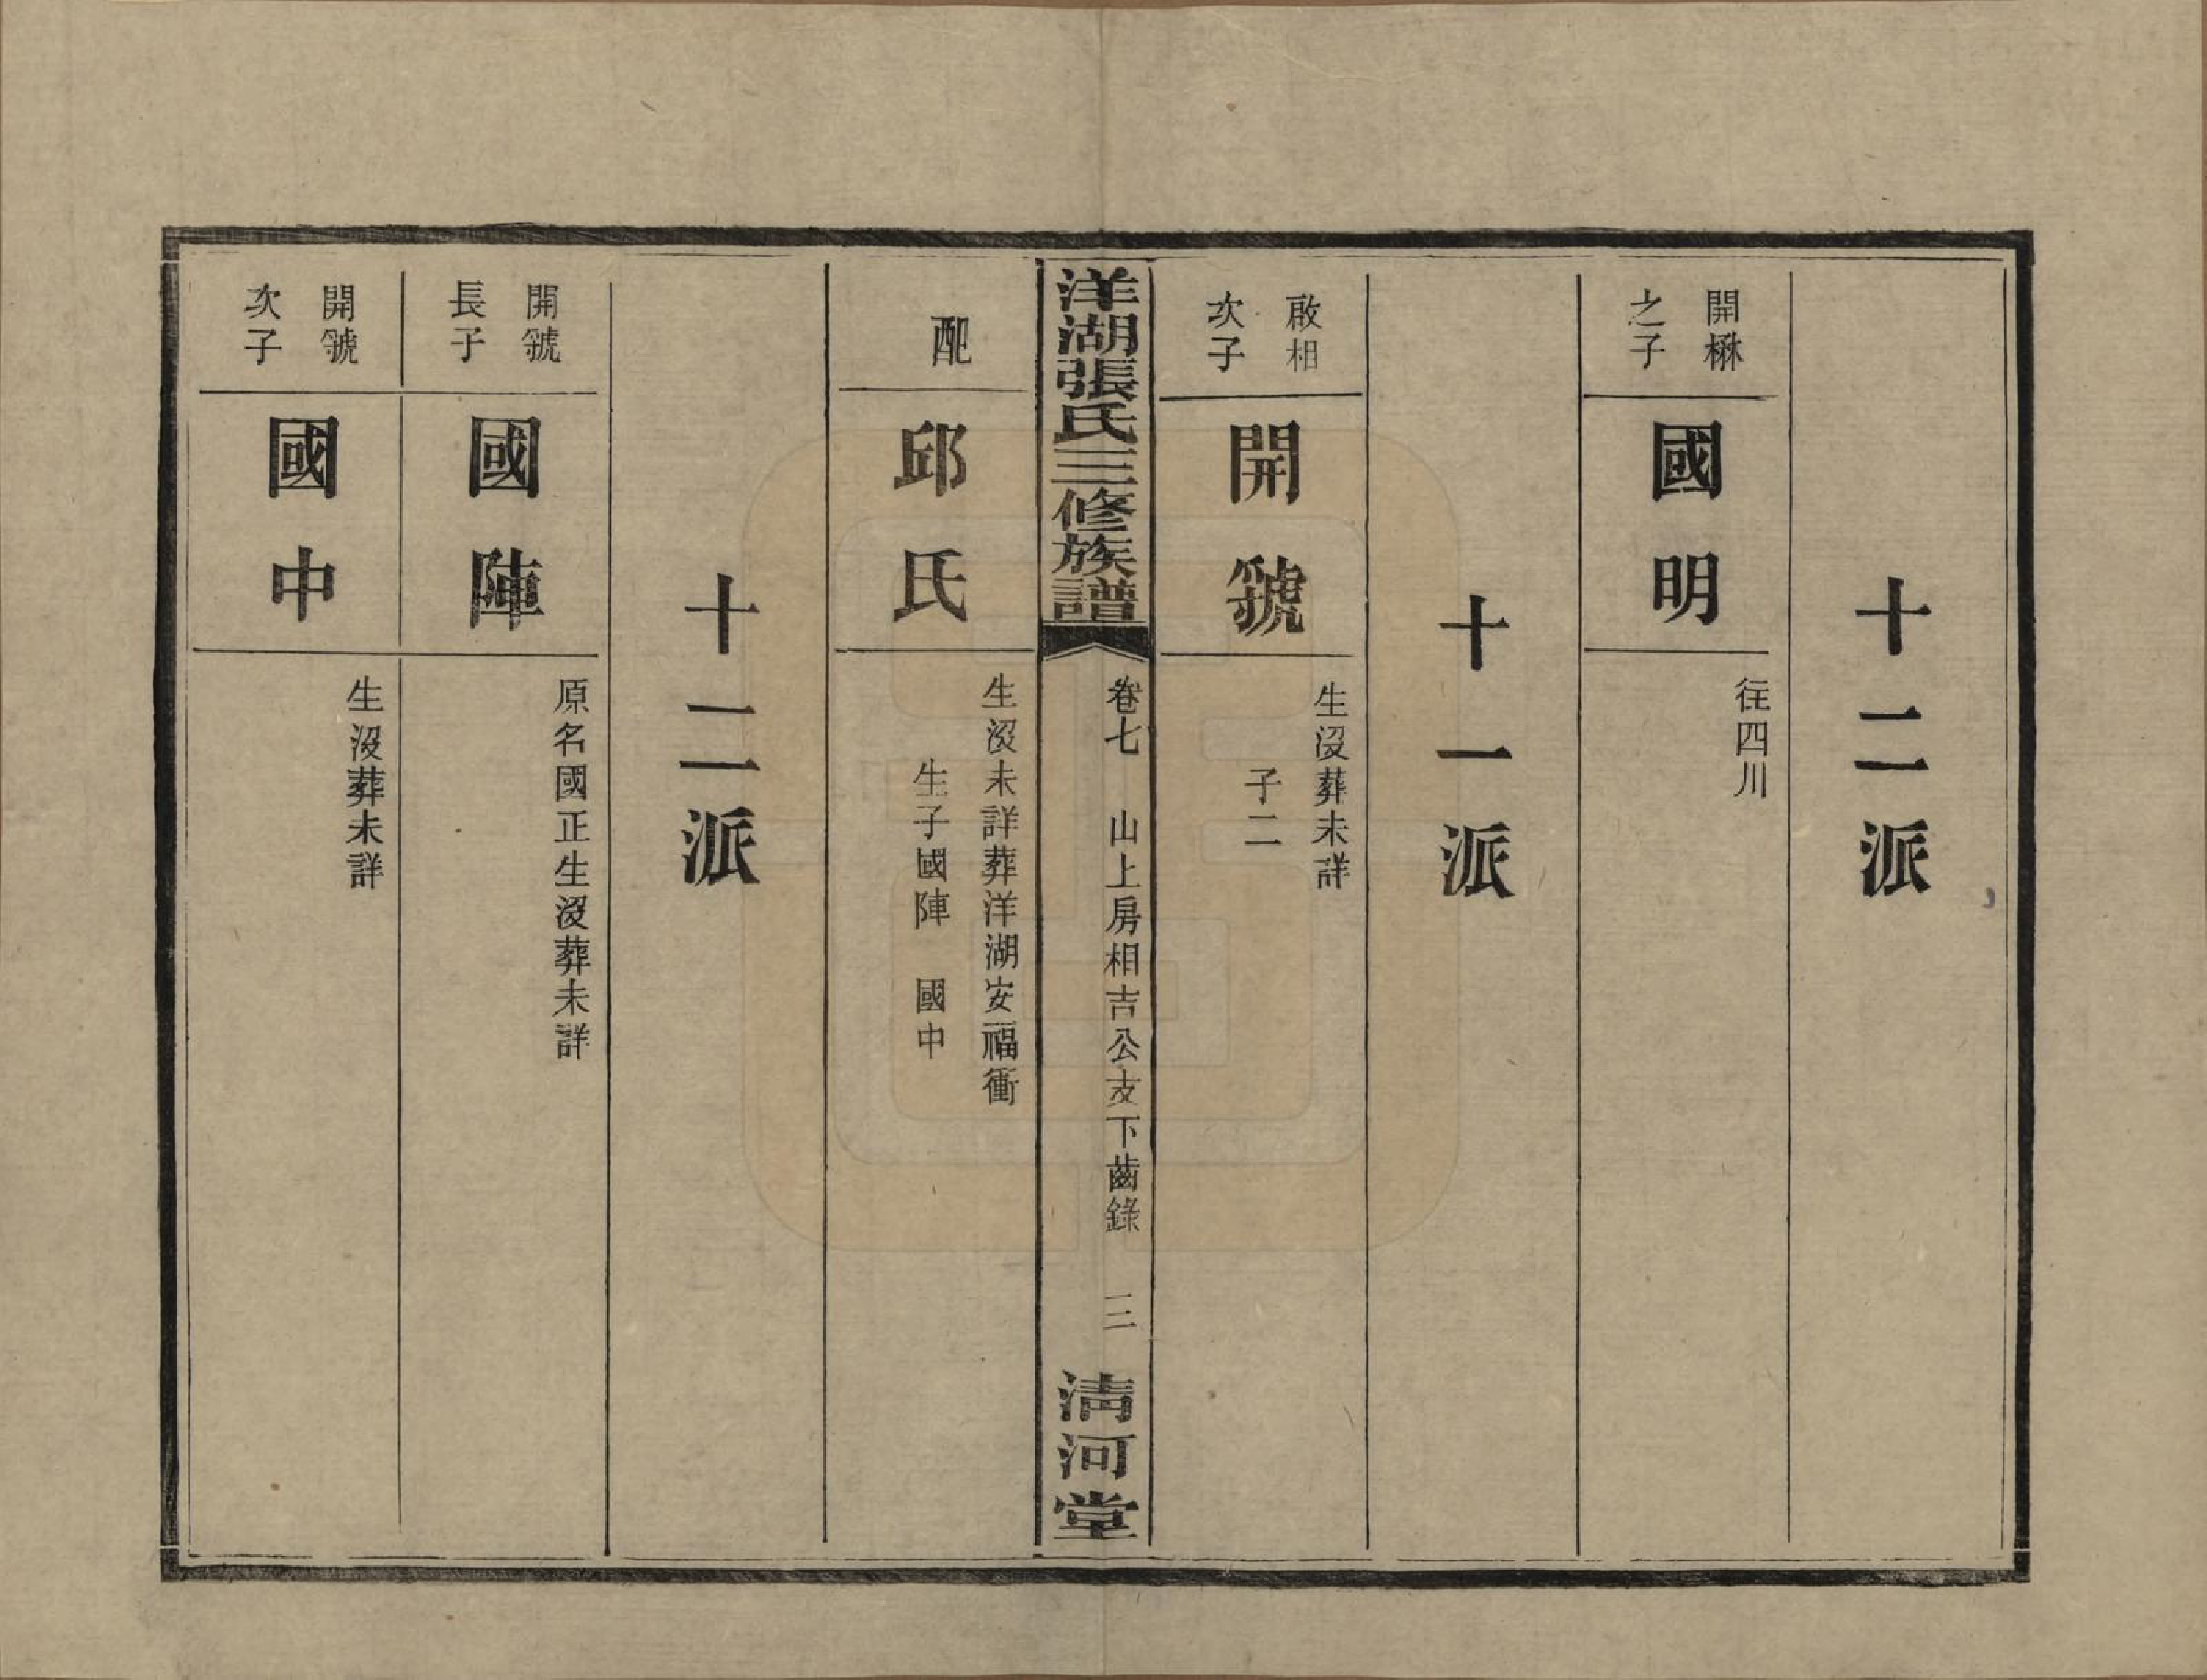 十二派
開楙
之子
國明
徃四川
十一派
啟相
次子
開號
生沒葬未詳
子二
洋湖張氏三修族譜
卷七　山上房相吉公支下齒錄　三
淸河堂
配
邱氏
生沒未詳葬洋湖安福衝
生子國陣　國中
十二派
開號
長子
國陣
原名國正生沒葬未詳
開號
次子
國中
生沒葬未詳